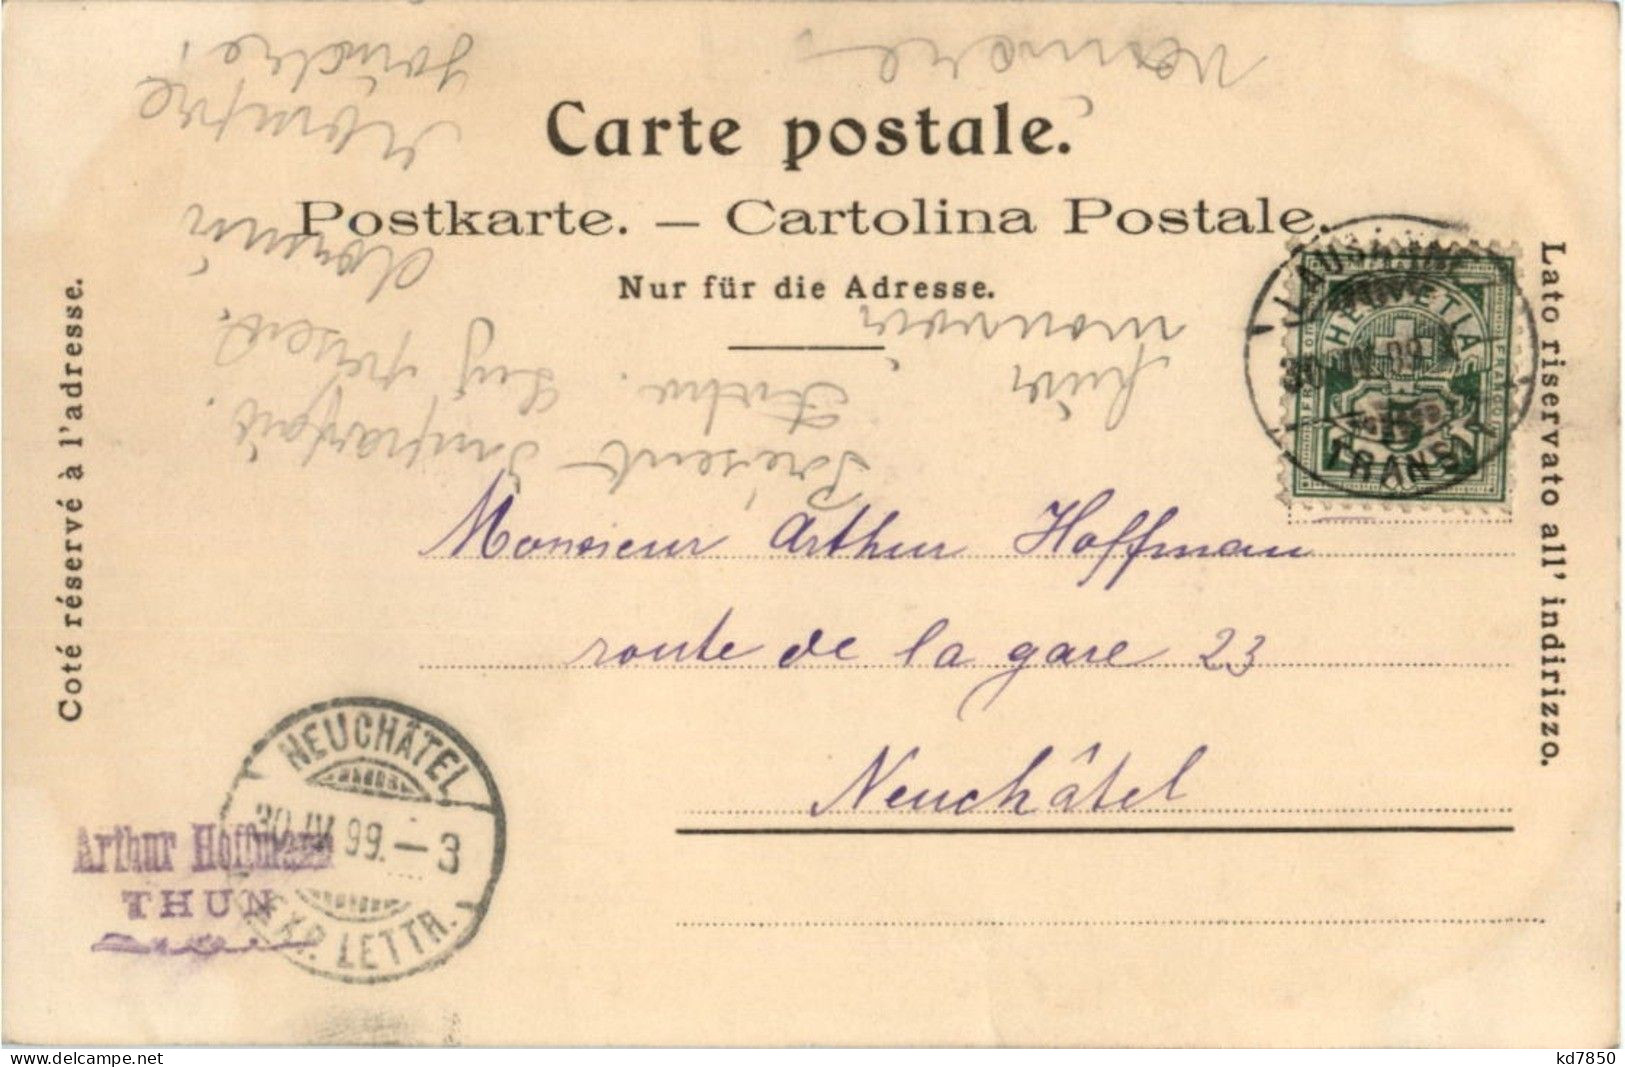 Carte postale.
Postkarte. — Cartolina Postale.
Nur für die Adresse.
Coté réservé à l'adresse.
Lato riservato all' indirizzo.
LAUSANNE
TRANSIT
HELVETIA
FRANCO
5
Présent Imparfait.
présent.
Monsieur Arthur Hoffman
route de la gare 23
Neuchâtel
NEUCHÂTEL
30 IV 99.–3
EXP. LETTR.
Arthur Hoffmann
THUN
kd7850